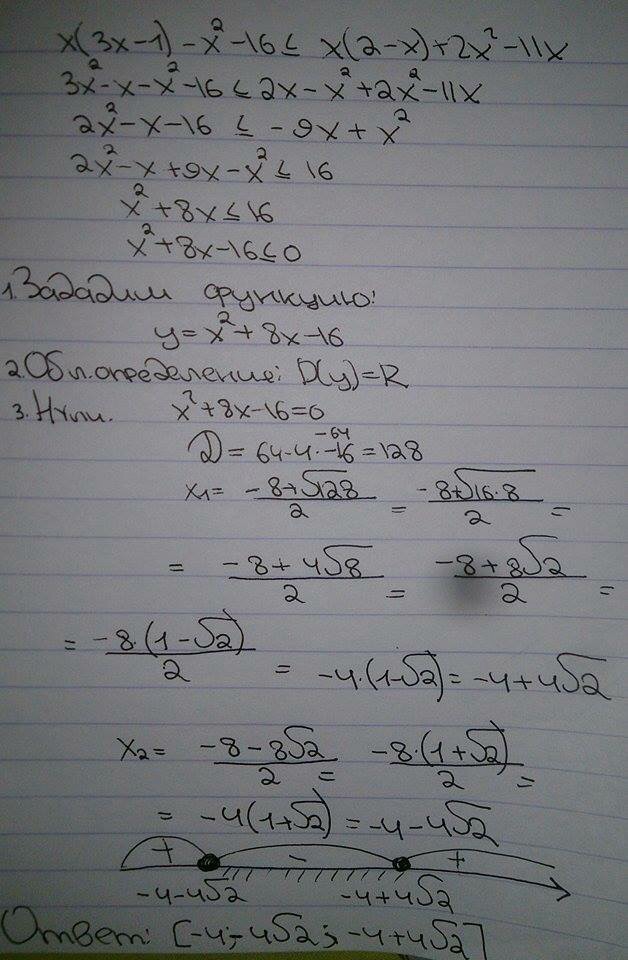 x(3x-1) - x² - 16 ≤ x(2-x) + 2x² - 11x
3x² - x - x² - 16 ≤ 2x - x² + 2x² - 11x
2x² - x - 16 ≤ - 9x + x²
2x² - x + 9x - x² ≤ 16
x² + 8x ≤ 16
x² + 8x - 16 ≤ 0
1. Зададим функцию:
y = x² + 8x - 16
2. Обл. определение: D(y) = R
3. Нули. x² + 8x - 16 = 0
-64
D = 64 - 4 · -16 = 128
x₁ = (-8+√128)/2 = (-8+√16·8)/2 =
= (-8 + 4√8)/2 = (-8 + 8√2)/2 =
= (-8·(1-√2))/2 = -4·(1-√2) = -4 + 4√2
x₂ = (-8 - 8√2)/2 = (-8·(1+√2))/2 =
= -4(1+√2) = -4 - 4√2
+ - +
-4-4√2 -4+4√2
Ответ: [-4-4√2; -4+4√2]